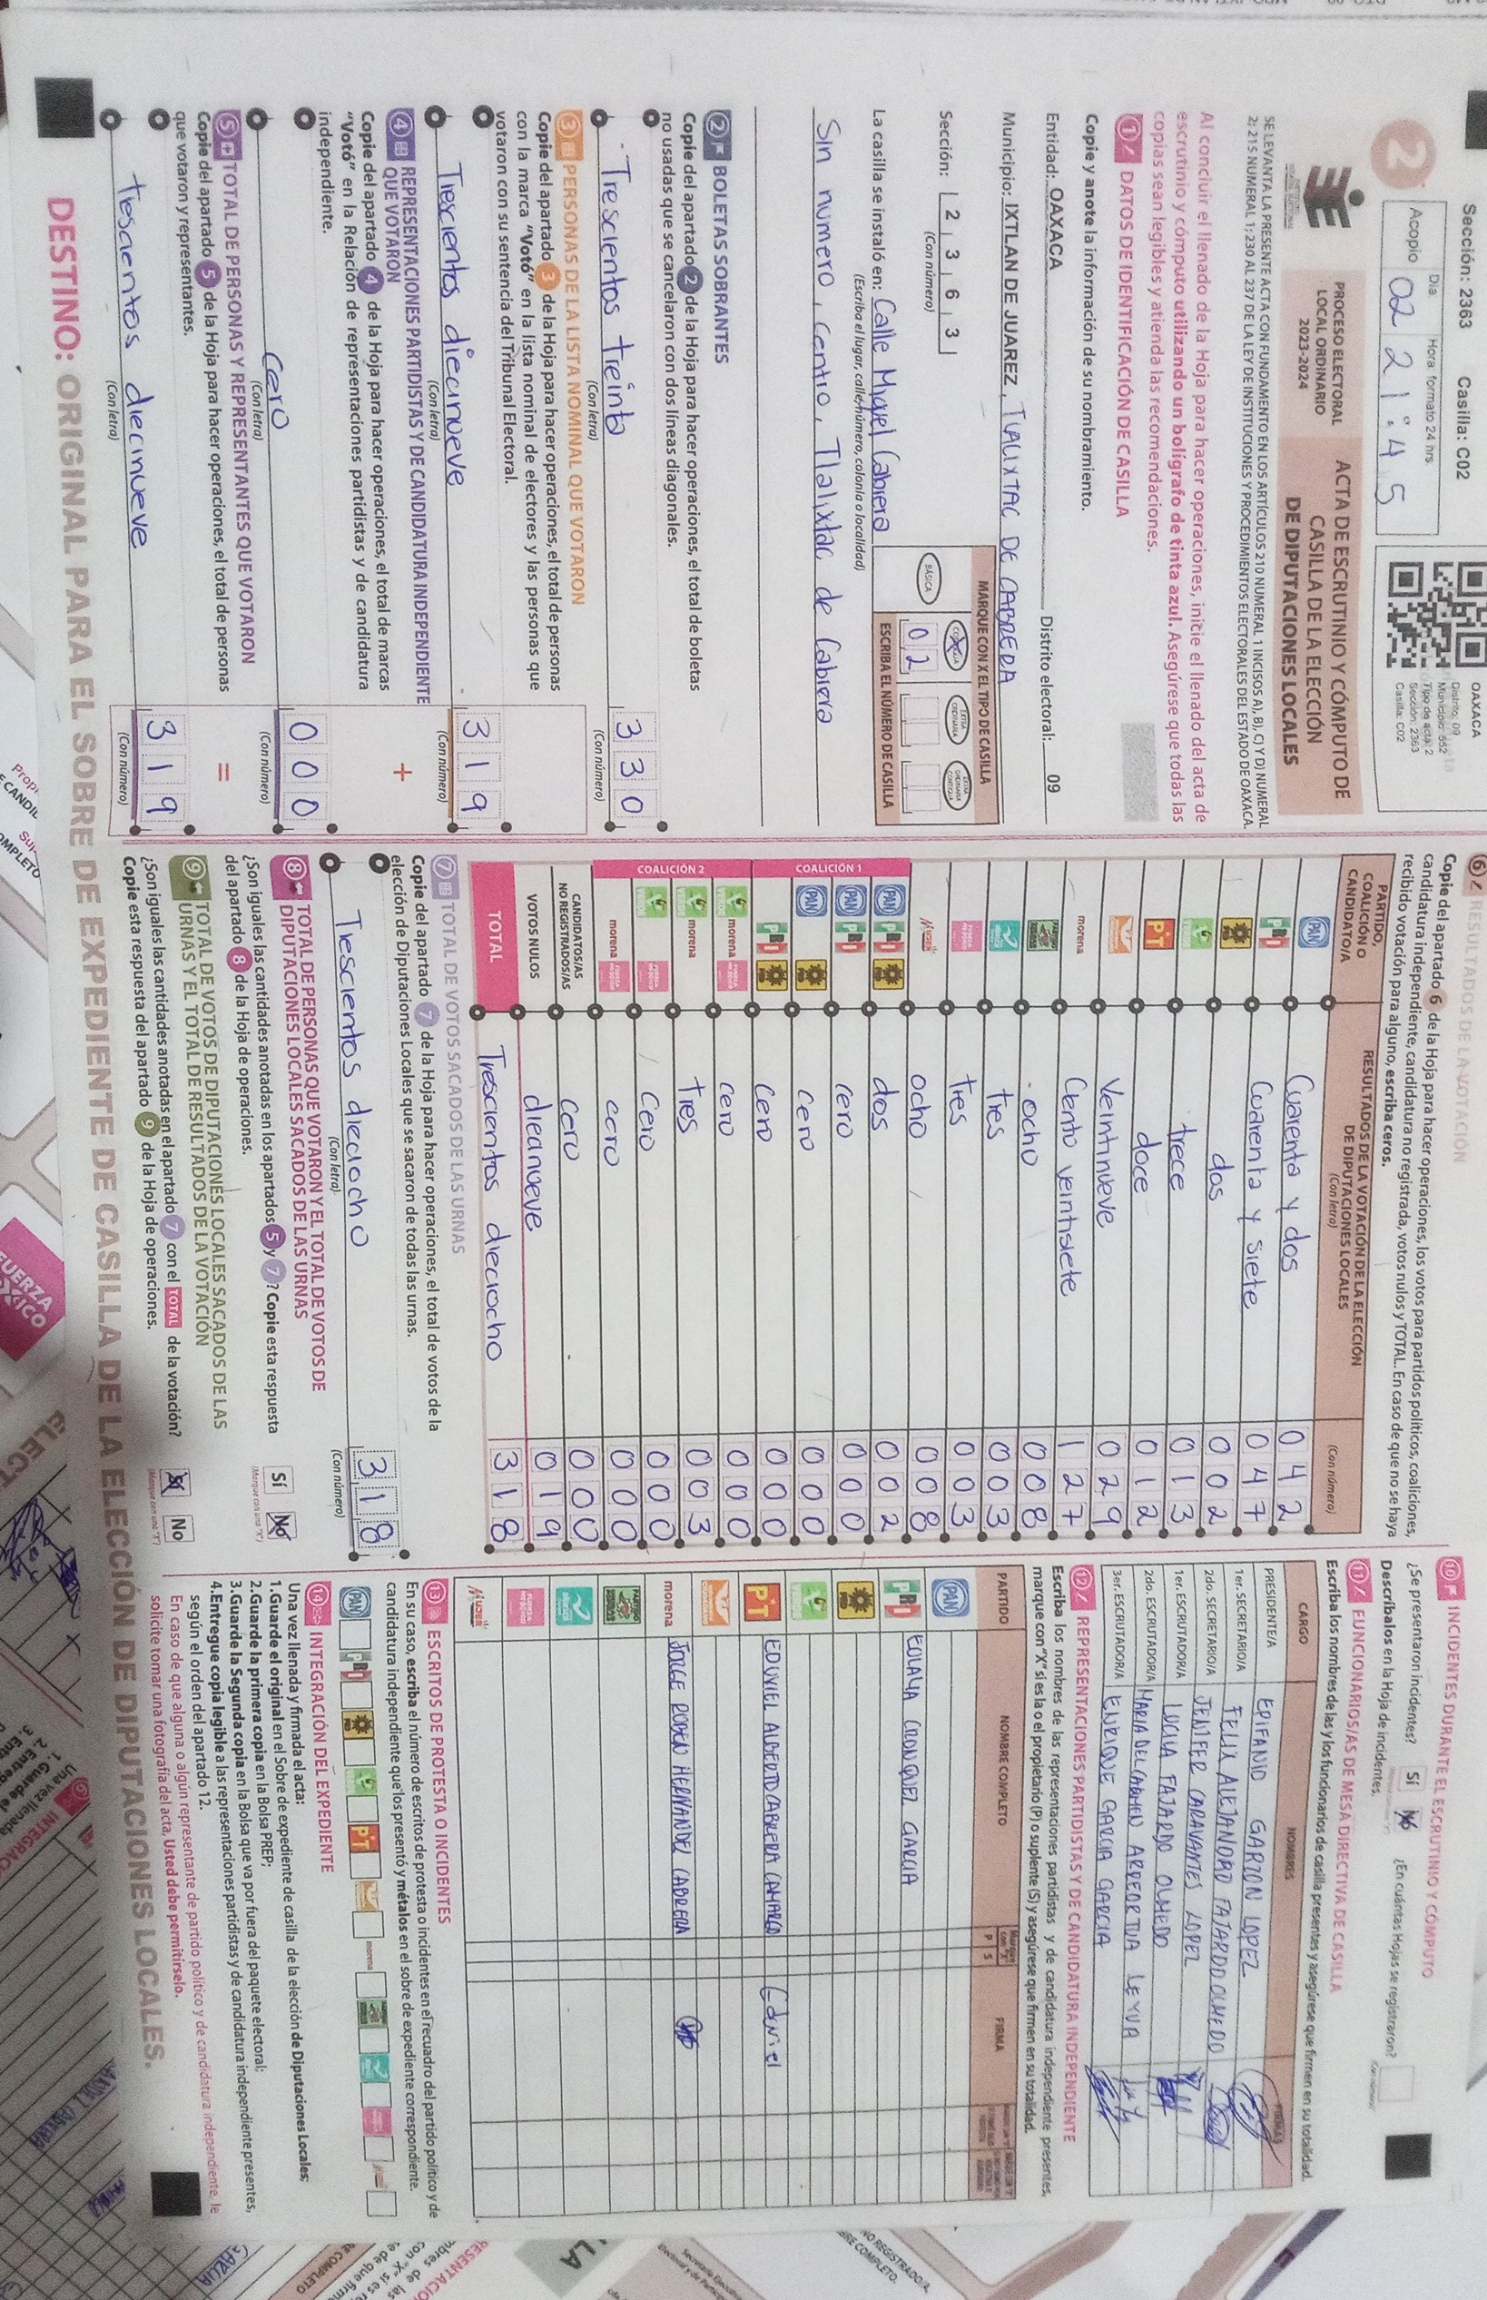 Sección: 2363 Casilla: C02
2
Día Hora: formato 24 hrs.
Acopio 02 21:45
OAXACA
Distrito: 09
Municipio: 552
Tipo de acta: 2
Sección: 2363
Casilla: C02
PROCESO ELECTORAL
LOCAL ORDINARIO
2023-2024
ACTA DE ESCRUTINIO Y CÓMPUTO DE
CASILLA DE LA ELECCIÓN
DE DIPUTACIONES LOCALES
SE LEVANTA LA PRESENTE ACTA CON FUNDAMENTO EN LOS ARTÍCULOS 210 NUMERAL 1 INCISOS A), B), C) Y D) NUMERAL
2; 215 NUMERAL 1; 230 AL 237 DE LA LEY DE INSTITUCIONES Y PROCEDIMIENTOS ELECTORALES DEL ESTADO DE OAXACA.
Al concluir el llenado de la Hoja para hacer operaciones, inicie el llenado del acta de
escrutinio y cómputo utilizando un bolígrafo de tinta azul. Asegúrese que todas las
copias sean legibles y atienda las recomendaciones.
1 DATOS DE IDENTIFICACIÓN DE CASILLA
Copie y anote la información de su nombramiento.
Entidad: OAXACA Distrito electoral: 09
Municipio: IXTLAN DE JUAREZ, TLALIXTAC DE CABRERA
Sección: 2 3 6 3
(Con número)
MARQUE CON X EL TIPO DE CASILLA
BÁSICA
ESCRIBA EL NÚMERO DE CASILLA
0 2
La casilla se instaló en: Calle Miguel Cabrera
(Escriba el lugar, calle, número, colonia o localidad)
Sin numero, Centro, Tlalixtac de Cabrera
2 BOLETAS SOBRANTES
Copie del apartado 2 de la Hoja para hacer operaciones, el total de boletas
no usadas que se cancelaron con dos líneas diagonales.
Trescientos treinta 330
(Con letra) (Con número)
3 PERSONAS DE LA LISTA NOMINAL QUE VOTARON
Copie del apartado 3 de la Hoja para hacer operaciones, el total de personas
con la marca "Votó" en la lista nominal de electores y las personas que
votaron con su sentencia del Tribunal Electoral.
Trescientos diecinueve 319
(Con letra) (Con número)
4 REPRESENTACIONES PARTIDISTAS Y DE CANDIDATURA INDEPENDIENTE
QUE VOTARON +
Copie del apartado 4 de la Hoja para hacer operaciones, el total de marcas
"Votó" en la Relación de representaciones partidistas y de candidatura
independiente.
Cero 000
(Con letra) (Con número)
5 TOTAL DE PERSONAS Y REPRESENTANTES QUE VOTARON =
Copie del apartado 5 de la Hoja para hacer operaciones, el total de personas
que votaron y representantes.
diecinueve 319
(Con letra) (Con número)
6 RESULTADOS DE LA VOTACIÓN
Copie del apartado 6 de la Hoja para hacer operaciones, los votos para partidos políticos, coaliciones,
candidatura independiente, candidatura no registrada, votos nulos y TOTAL. En caso de que no se haya
recibido votación para alguno, escriba ceros.
PARTIDO,
COALICIÓN O
CANDIDATO/A
RESULTADOS DE LA VOTACIÓN DE LA ELECCIÓN
DE DIPUTACIONES LOCALES
(Con letra) (Con número)
PAN Cuarenta y dos 042
PRI Cuarenta y siete 047
PRD dos 002
VERDE trece 013
PT doce 012
Veintinueve 029
morena Ciento veintisiete 127
ocho 008
tres 003
tres 003
MUJER ocho 008
COALICIÓN 1
PAN PRI PRD dos 002
PAN PRI cero 000
PAN PRD cero 000
PRI PRD cero 000
COALICIÓN 2
VERDE morena cero 000
VERDE morena tres 003
VERDE cero 000
morena cero 000
CANDIDATOS/AS
NO REGISTRADOS/AS cero 000
VOTOS NULOS diecinueve 019
TOTAL Trescientos dieciocho 318
7 TOTAL DE VOTOS SACADOS DE LAS URNAS
Copie del apartado 7 de la Hoja para hacer operaciones, el total de votos de la
elección de Diputaciones Locales que se sacaron de todas las urnas.
Trescientos dieciocho 318
(Con letra) (Con número)
8 TOTAL DE PERSONAS QUE VOTARON Y EL TOTAL DE VOTOS DE
DIPUTACIONES LOCALES SACADOS DE LAS URNAS
¿Son iguales las cantidades anotadas en los apartados 5 y 7? Copie esta respuesta
del apartado 8 de la Hoja de operaciones.
Sí No
(Marque con una "X")
9 TOTAL DE VOTOS DE DIPUTACIONES LOCALES SACADOS DE LAS
URNAS Y EL TOTAL DE RESULTADOS DE LA VOTACIÓN
¿Son iguales las cantidades anotadas en el apartado 7 con el TOTAL de la votación?
Copie esta respuesta del apartado 9 de la Hoja de operaciones.
Sí No
(Marque con una "X")
10 INCIDENTES DURANTE EL ESCRUTINIO Y CÓMPUTO
¿Se presentaron incidentes? Sí No ¿En cuántas Hojas se registraron?
Descríbalos en la Hoja de incidentes.
11 FUNCIONARIOS/AS DE MESA DIRECTIVA DE CASILLA
Escriba los nombres de las y los funcionarios de casilla presentes y asegúrese que firmen en su totalidad.
CARGO NOMBRES FIRMAS
PRESIDENTE/A EPIFANIO GARZON LOPEZ
1er. SECRETARIO/A FELIX ALEJANDRO FAJARDO OLMEDO
2do. SECRETARIO/A JENIFER CARAVANTES LOPEZ
1er. ESCRUTADOR/A LUCILA FAJARDO OLMEDO
2do. ESCRUTADOR/A MARIA DEL CARMEN ARREORTUA LEYVA
3er. ESCRUTADOR/A ENRIQUE GARCIA GARCIA
12 REPRESENTACIONES PARTIDISTAS Y DE CANDIDATURA INDEPENDIENTE
Escriba los nombres de las representaciones partidistas y de candidatura independiente presentes,
marque con "X" si es la o el propietario (P) o suplente (S) y asegúrese que firmen en su totalidad.
PARTIDO NOMBRE COMPLETO P S FIRMA
PAN
PRI EULALIA GARCIA
PRD
VERDE
PT EDUVIEL ALBERTO CABRERA CAMARGO
morena JORGE RUBEN HERNANDEZ CABRERA
MUJER
13 ESCRITOS DE PROTESTA O INCIDENTES
En su caso, escriba el número de escritos de protesta o incidentes en el recuadro del partido político y de
candidatura independiente que los presentó y métalos en el sobre de expediente correspondiente.
PAN PRI PRD VERDE PT morena
14 INTEGRACIÓN DEL EXPEDIENTE
Una vez llenada y firmada el acta:
1.Guarde el original en el Sobre de expediente de casilla de la elección de Diputaciones Locales;
2.Guarde la primera copia en la Bolsa PREP;
3.Guarde la Segunda copia en la Bolsa que va por fuera del paquete electoral;
4.Entregue copia legible a las representaciones partidistas y de candidatura independiente presentes,
según el orden del apartado 12.
En caso de que alguna o algún representante de partido político y de candidatura independiente, le
solicite tomar una fotografía del acta, Usted debe permitírselo.
DESTINO: ORIGINAL PARA EL SOBRE DE EXPEDIENTE DE CASILLA DE LA ELECCIÓN DE DIPUTACIONES LOCALES.